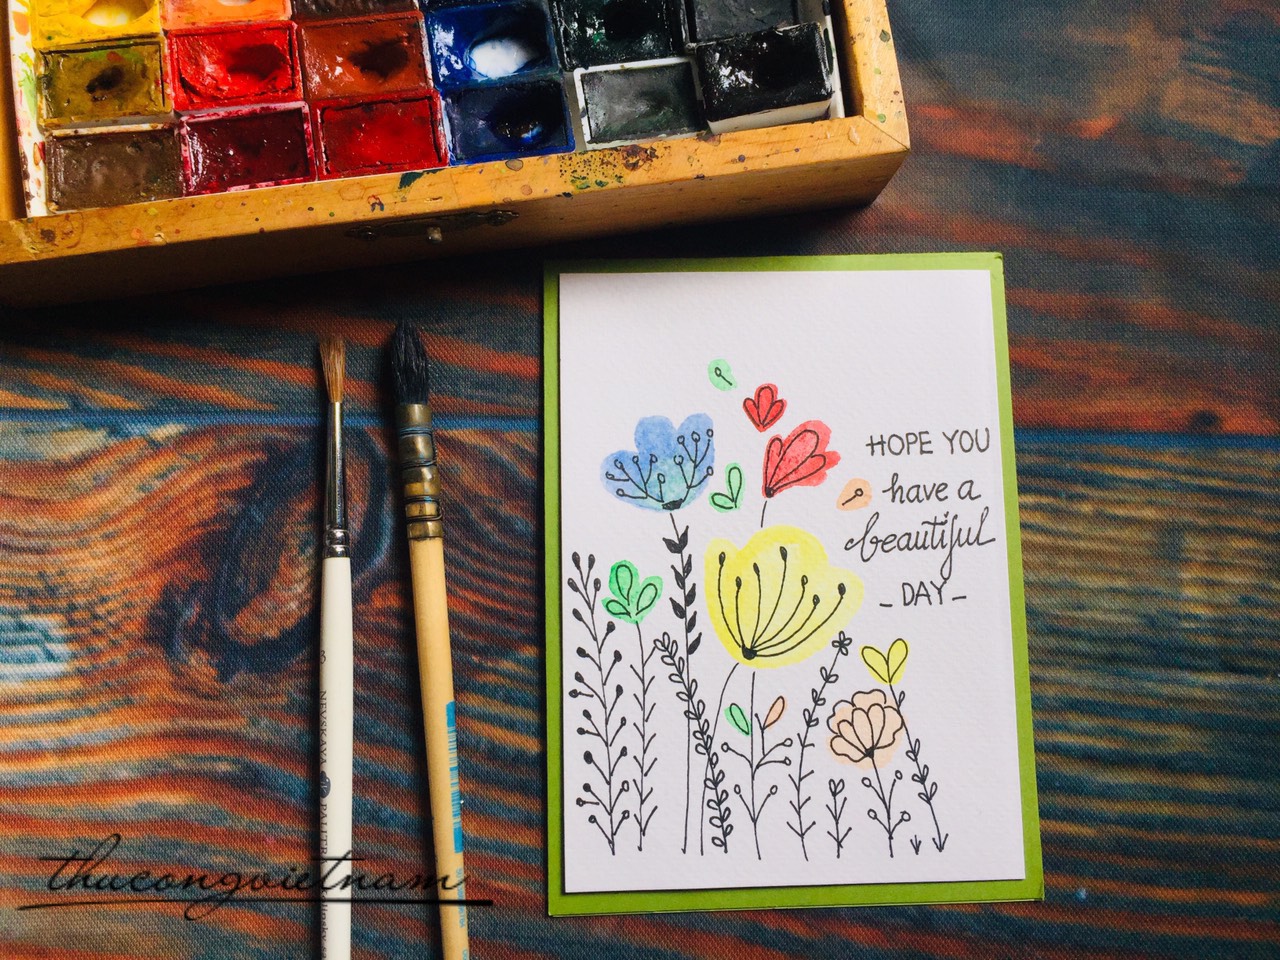 HOPE YOU
have a
beautiful
- DAY -
NEVSKAYA PALITRA
thucongvietnam